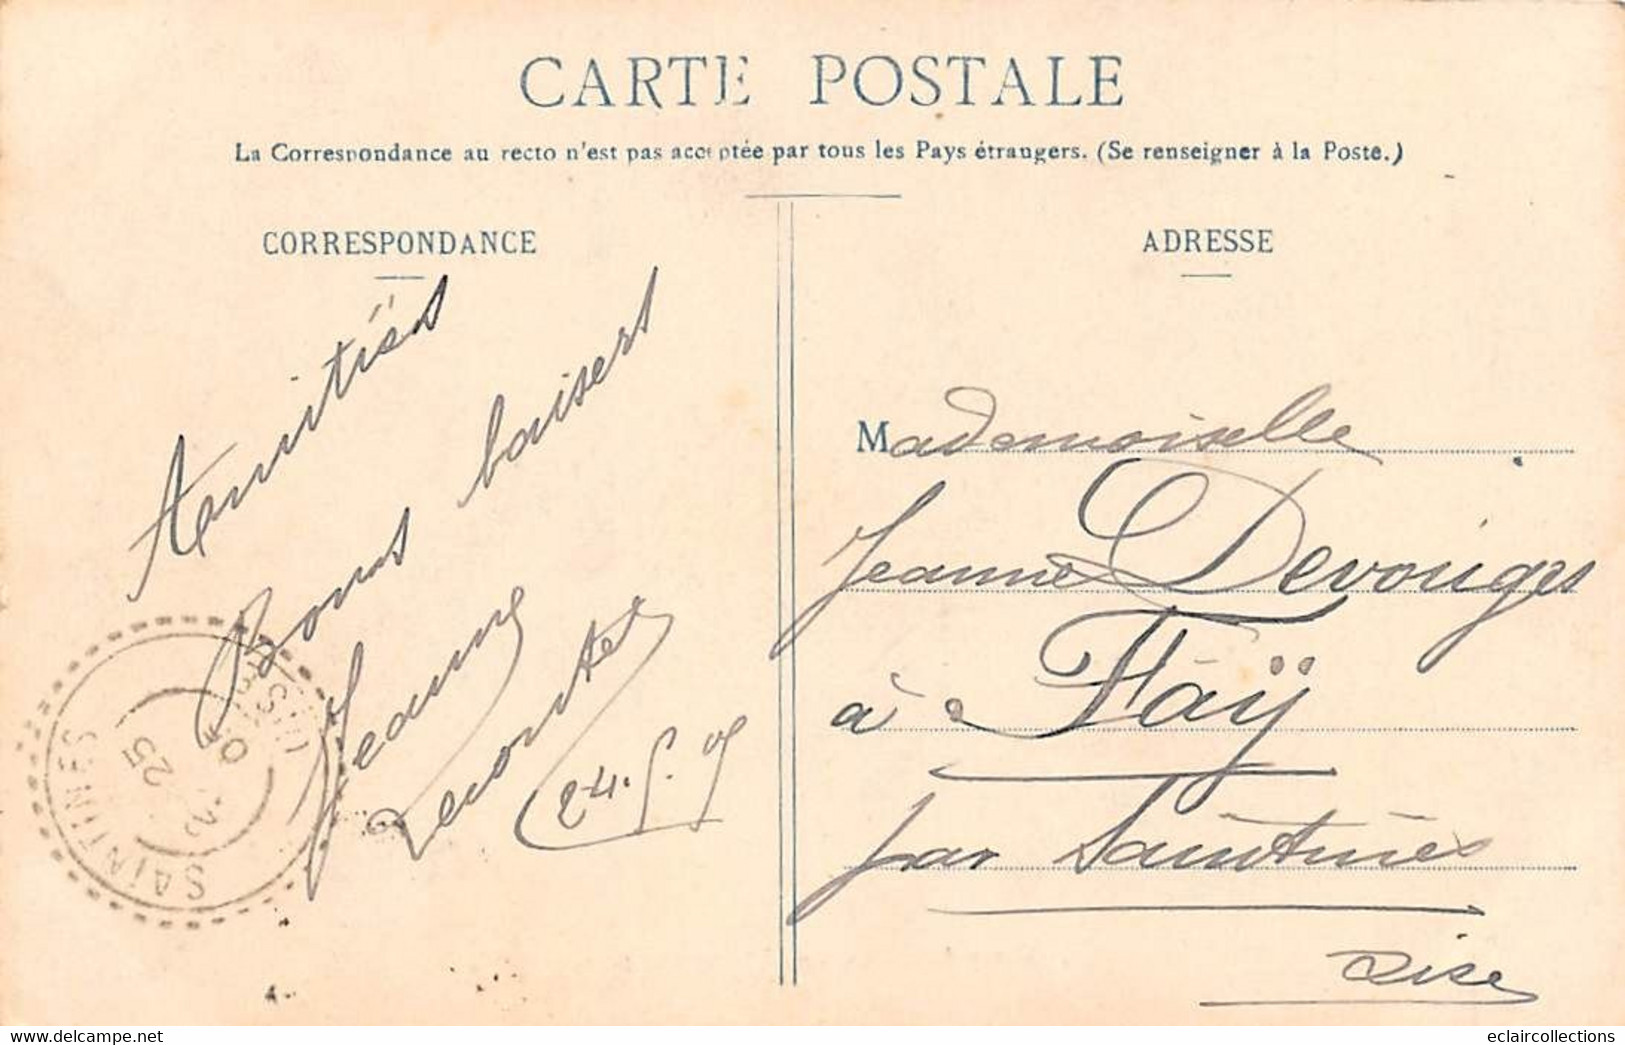 CARTE POSTALE
La Correspondance au recto n'est pas acceptée par tous les Pays étrangers. (Se renseigner à la Poste.)
CORRESPONDANCE
Amitiés
Bons baisers
Jeanne
Lecomte
24.5.05
SAINTINES
25
05
ADRESSE
Mademoiselle
Jeanne Devouges
à Faÿ
par Saintines
Oise
eclaircollections